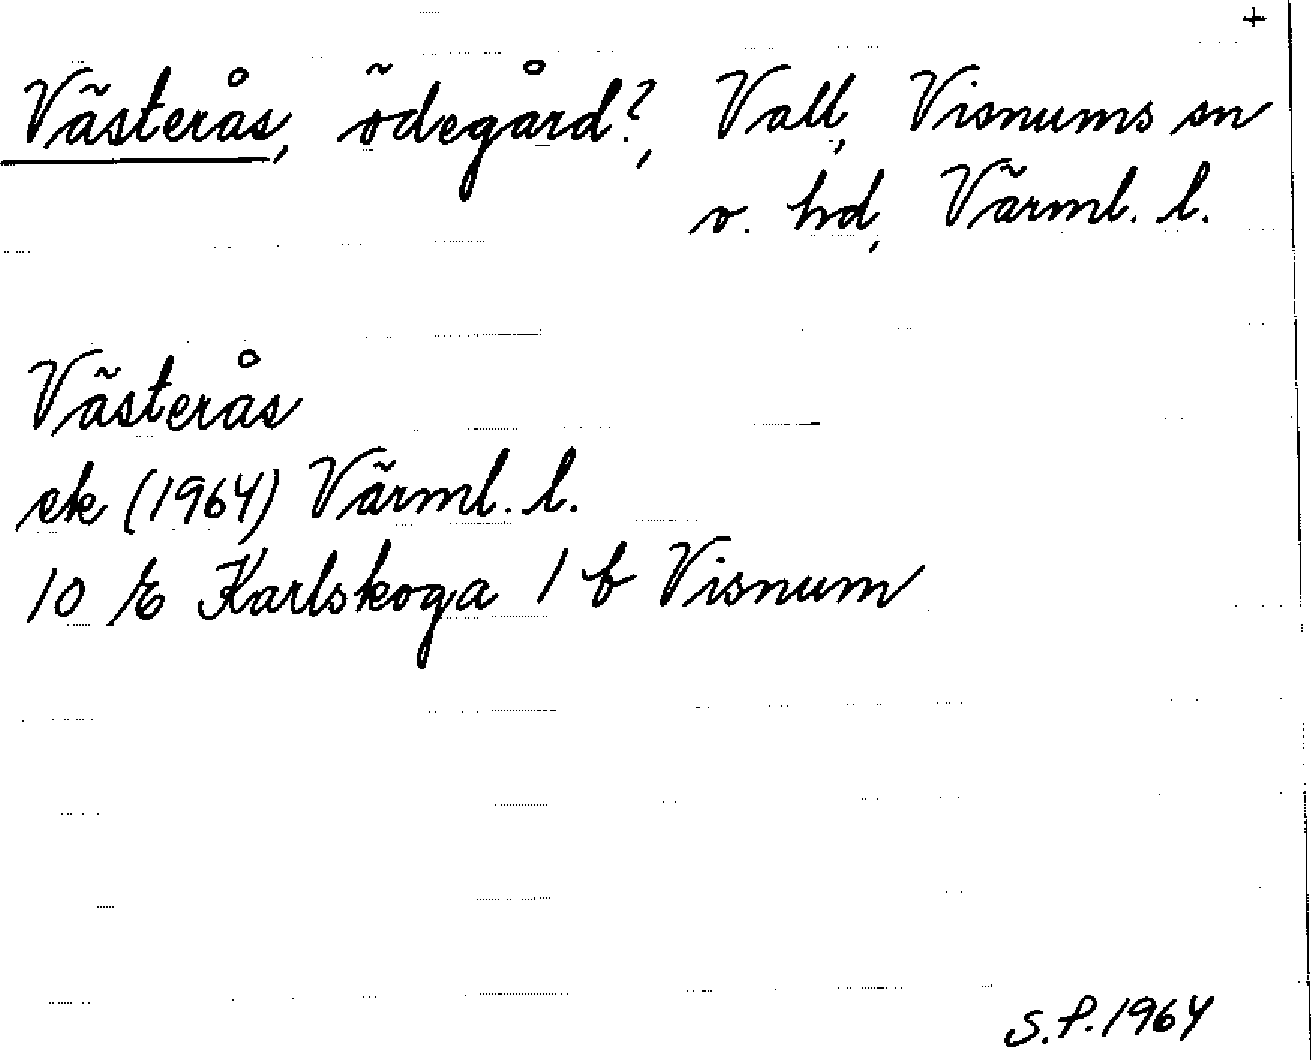 +
Västerås, ödegård?, Vall, Visnums sn
v. hd, Värml. l.
Västerås
ek (1964) Värml. l.
10 E Karlskoga 1 b Visnum
S.P. 1964